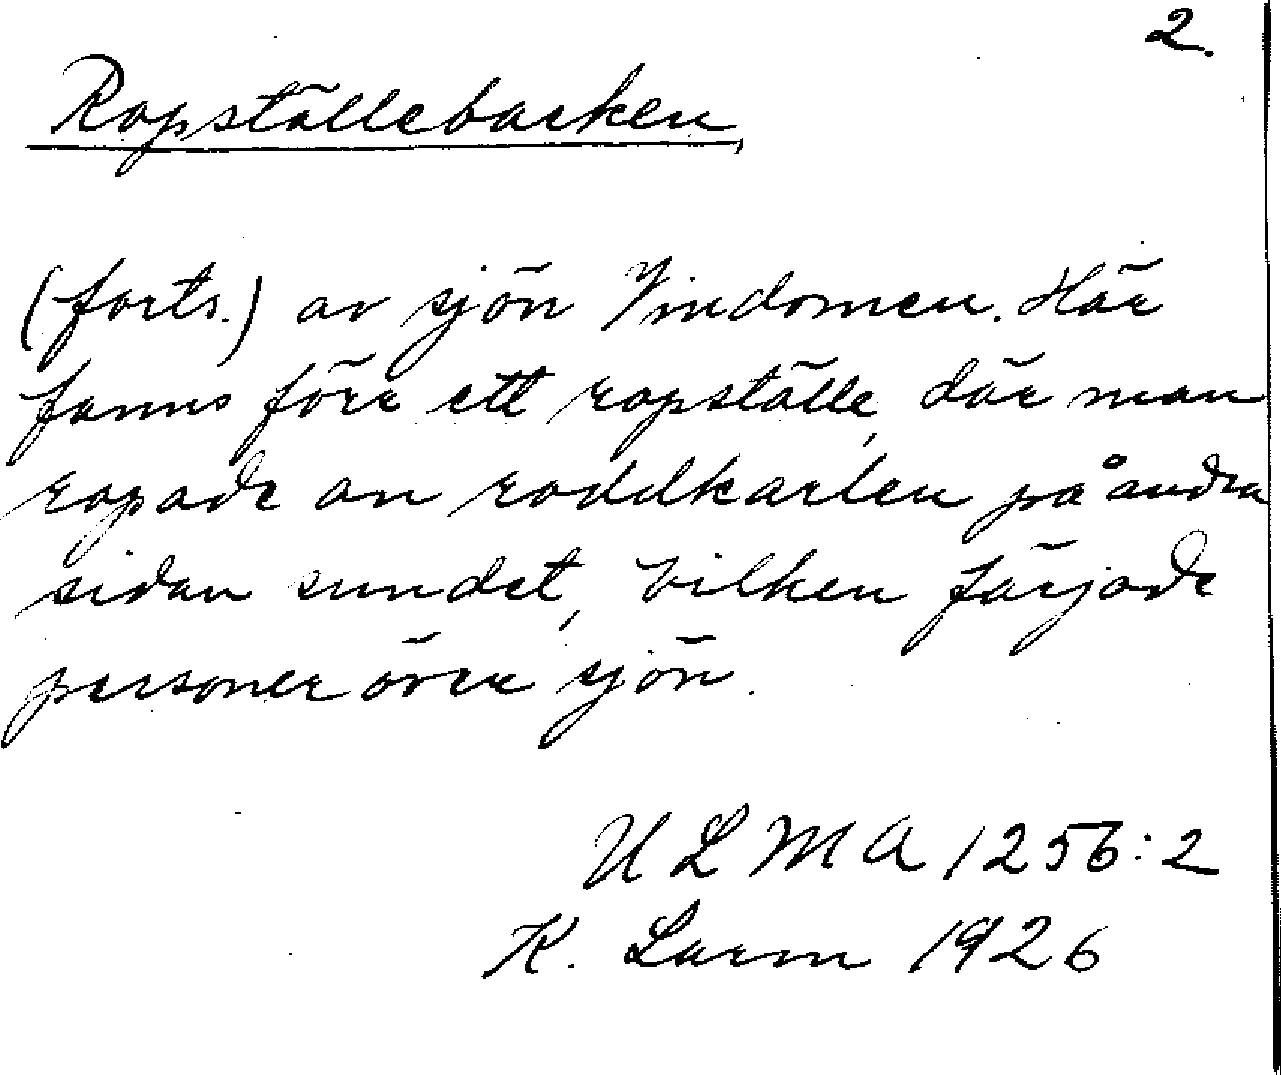 2.
Ropställebacken,
(forts.) av sjön Vindomen. Här
fanns före ett ropställe, där man
ropade an roddkarlen på andra
sidan sundet, vilken färjade
personer över sjön.
ULMA 1256:2
K. Larm 1926